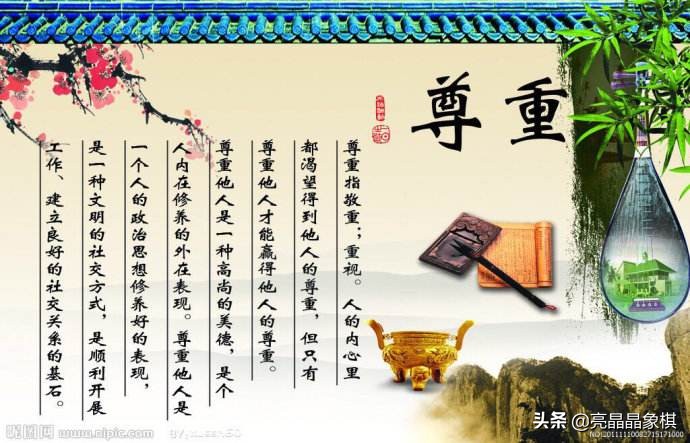 尊重
尊重指敬重；重视。人的内心里
都渴望得到他人的尊重，但只有
尊重他人才能赢得他人的尊重。
尊重他人是一种高尚的美德，是个
人内在修养的外在表现。尊重他人是
一个人的政治思想修养好的表现，
是一种文明的社交方式，是顺利开展
工作、建立良好的社交关系的基石。
昵图网
www.nipic.com
头条@亮晶晶象棋